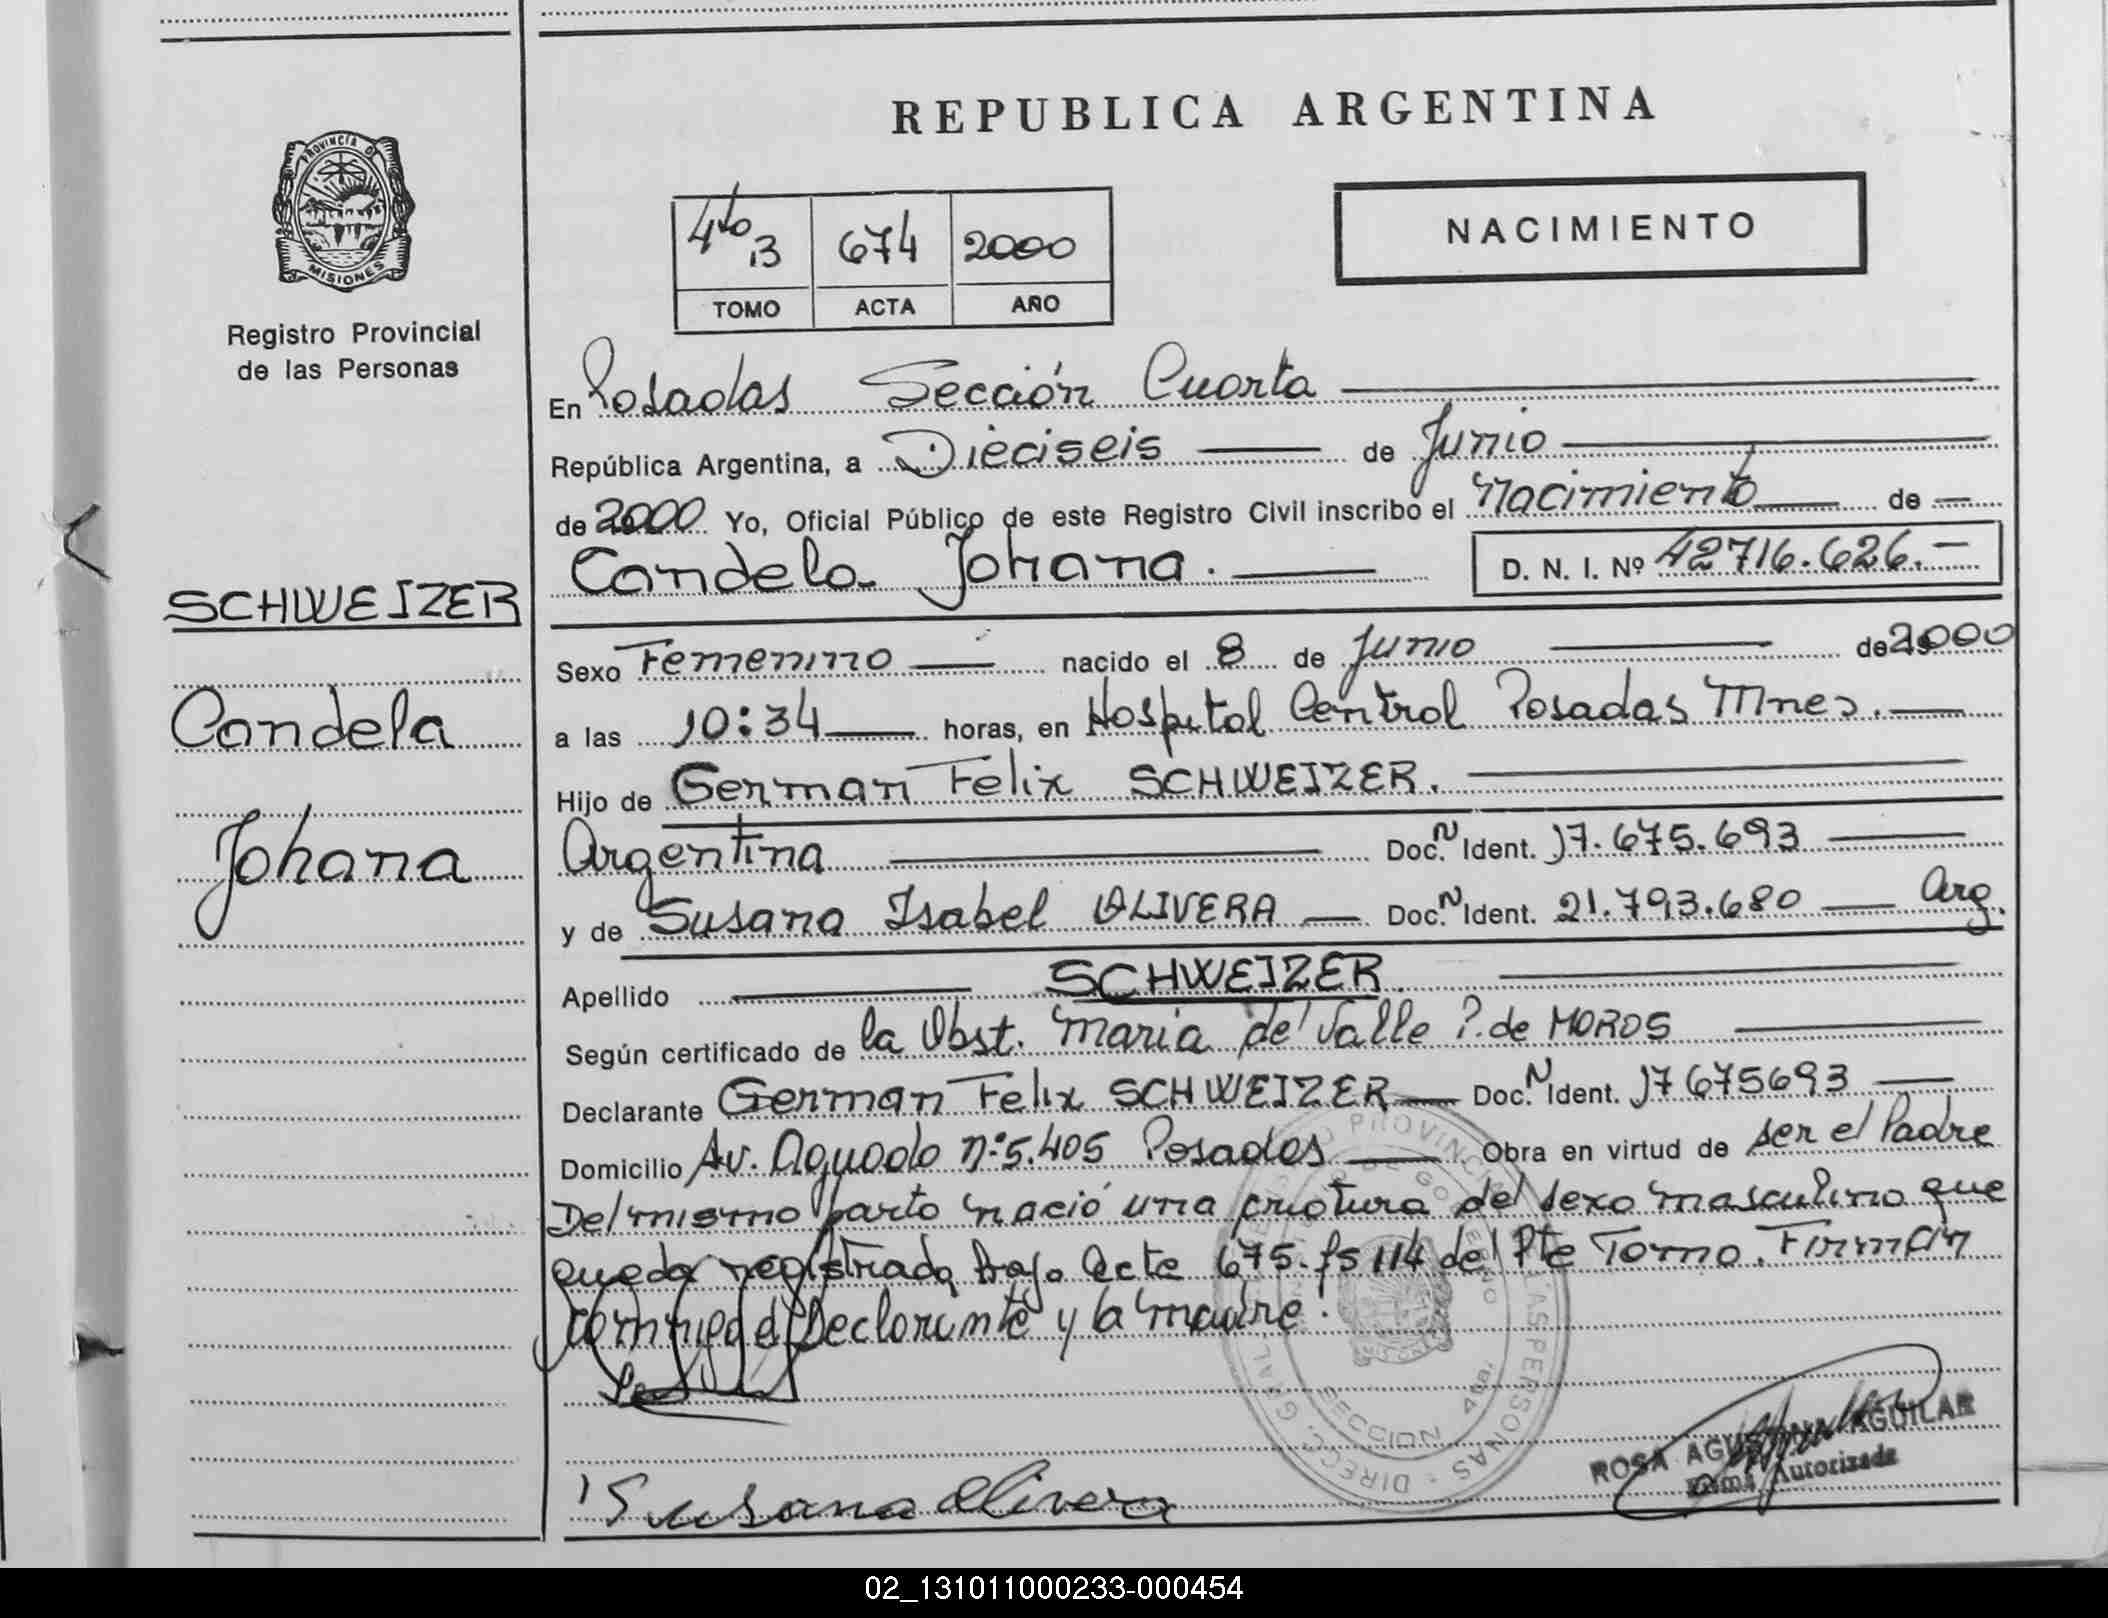 REPUBLICA ARGENTINA
PROVINCIA DE
MISIONES
Registro Provincial
de las Personas
4to B 674 2000
TOMO ACTA AÑO
NACIMIENTO
En Posadas Sección Cuarta
República Argentina, a Dieciseis de Junio
de 2000 Yo, Oficial Público de este Registro Civil inscribo el Nacimiento de
Candela Johana. D. N. I. Nº 42716.626.-
SCHWEIZER
Candela
Johana
Sexo Femenino nacido el 8 de Junio de 2000
a las 10:34 horas, en Hospital Central Posadas Mnes.
Hijo de German Felix SCHWEIZER.
Argentina Doc. N Ident. 17.675.693
y de Susana Isabel OLIVERA Doc. N Ident. 21.793.680 Arg.
Apellido SCHWEIZER.
Según certificado de la Obst. Maria del Valle P. de MOROS
Declarante German Felix SCHWEIZER Doc. N Ident. 17675693
Domicilio Av. Aguado nº 5.405 Posadas Obra en virtud de ser el Padre
Del mismo parto nació una criatura del sexo masculino que
queda registrada bajo Acta 675. fs 114 del Pte Tomo. Firman
conmigo el Declarante y la madre.
Susana Olivera
ROSA AGUSTINA AGUILAR
Firma Autorizada
02_131011000233-000454